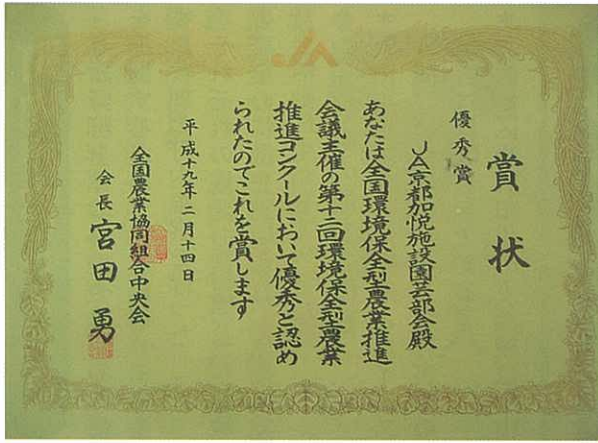 賞状
優秀賞
JA京都加悦施設園芸部会殿
あなたは全国環境保全型農業推進
会議主催の第十二回環境保全型農業
推進コンクールにおいて優秀と認め
られたのでこれを賞します
平成十九年二月十四日
全国農業協同組合中央会
会長 宮田勇